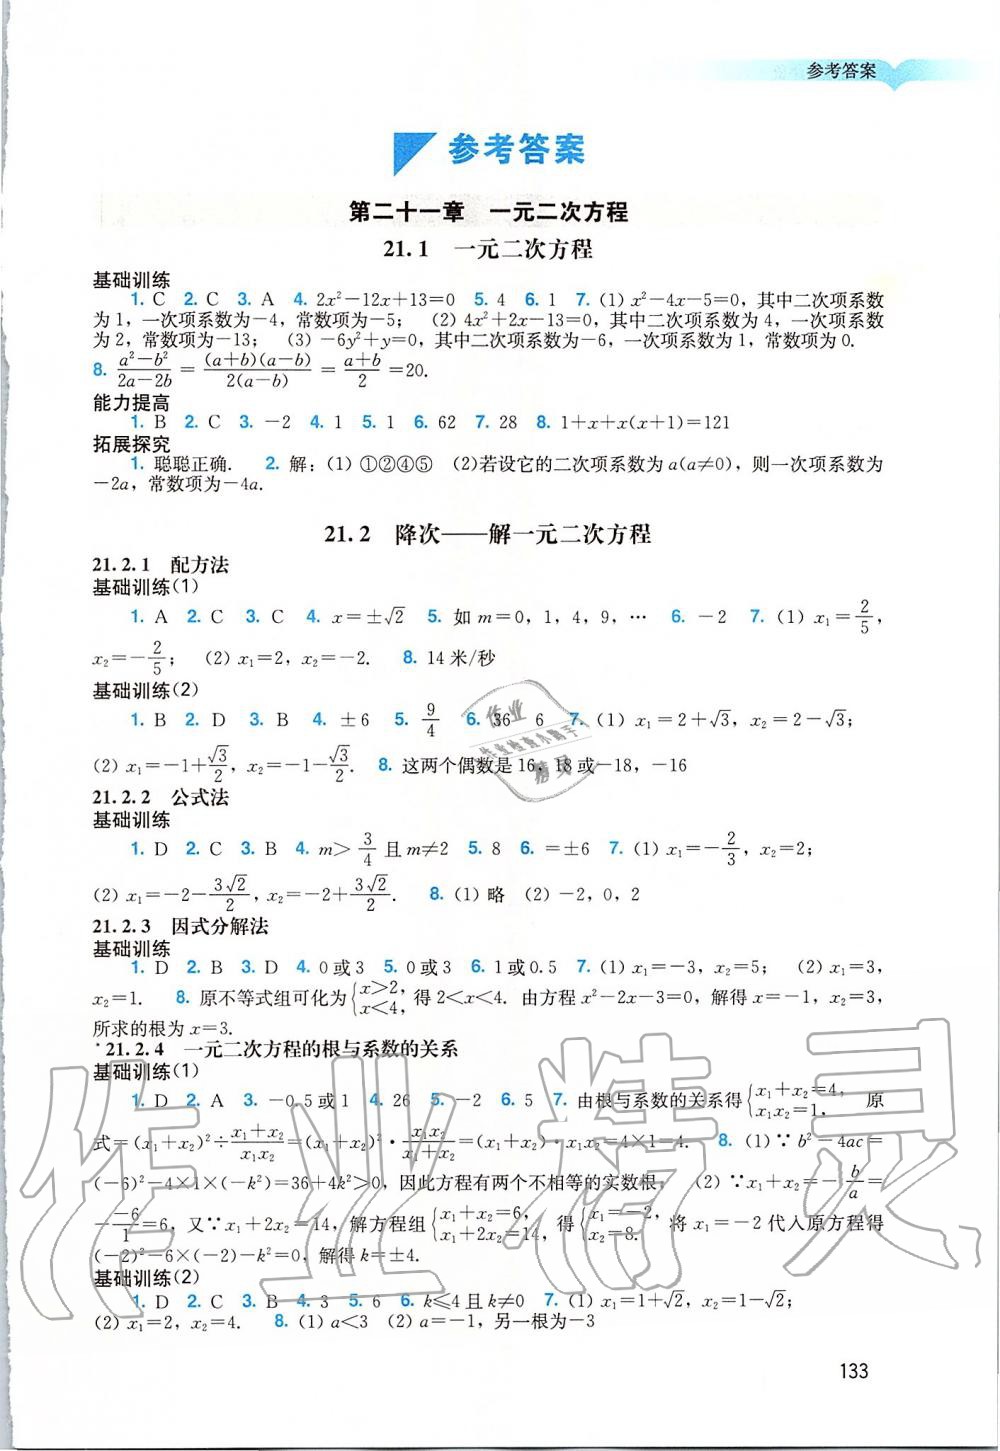 参考答案
参考答案
第二十一章　一元二次方程
21.1　一元二次方程
基础训练
1. C　2. C　3. A　4. 2x²－12x＋13＝0　5. 4　6. 1　7. (1) x²－4x－5＝0，其中二次项系数
为1，一次项系数为－4，常数项为－5；　(2) 4x²＋2x－13＝0，其中二次项系数为4，一次项系数
为2，常数项为－13；　(3) －6y²＋y＝0，其中二次项系数为－6，一次项系数为1，常数项为0.
8. (a²－b²)/(2a－2b)＝(a＋b)(a－b)/2(a－b)＝(a＋b)/2＝20.
能力提高
1. B　2. C　3. －2　4. 1　5. 1　6. 62　7. 28　8. 1＋x＋x(x＋1)＝121
拓展探究
1. 聪聪正确.　2. 解：(1) ①②④⑤　(2)若设它的二次项系数为a(a≠0)，则一次项系数为
－2a，常数项为－4a.
21.2　降次——解一元二次方程
21.2.1　配方法
基础训练(1)
1. A　2. C　3. C　4. x＝±√2　5. 如m＝0，1，4，9，…　6. －2　7. (1) x₁＝2/5，
x₂＝－2/5；　(2) x₁＝2，x₂＝－2.　8. 14米/秒
基础训练(2)
1. B　2. D　3. B　4. ±6　5. 9/4　6. 36　6　7. (1) x₁＝2＋√3，x₂＝2－√3；
(2) x₁＝－1＋√3/2，x₂＝－1－√3/2.　8. 这两个偶数是16，18或－18，－16
21.2.2　公式法
基础训练
1. D　2. C　3. B　4. m＞3/4且m≠2　5. 8　6. ＝±6　7. (1) x₁＝－2/3，x₂＝2；
(2) x₁＝－2－3√2/2，x₂＝－2＋3√2/2.　8. (1) 略　(2) －2，0，2
21.2.3　因式分解法
基础训练
1. D　2. B　3. D　4. 0或3　5. 0或3　6. 1或0.5　7. (1) x₁＝－3，x₂＝5；　(2) x₁＝3，
x₂＝1.　8. 原不等式组可化为{x＞2，x＜4，得2＜x＜4. 由方程x²－2x－3＝0，解得x＝－1，x₂＝3，
所求的根为x＝3.
*21.2.4　一元二次方程的根与系数的关系
基础训练(1)
1. D　2. A　3. －0.5或1　4. 26　5. －2　6. 5　7. 由根与系数的关系得{x₁＋x₂＝4，x₁x₂＝1.　原
式＝(x₁＋x₂)²÷(x₁＋x₂)/x₁x₂＝(x₁＋x₂)²·x₁x₂/(x₁＋x₂)＝(x₁＋x₂)·x₁x₂＝4×1＝4.　8. (1)∵b²－4ac＝
(－6)²－4×1×(－k²)＝36＋4k²＞0，因此方程有两个不相等的实数根；　(2)∵x₁＋x₂＝－b/a＝
－(－6)/1＝6，又∵x₁＋2x₂＝14，解方程组{x₁＋x₂＝6，x₁＋2x₂＝14，得{x₁＝－2，x₂＝8.将x₁＝－2代入原方程得
(－2)²－6×(－2)－k²＝0，解得k＝±4.
基础训练(2)
1. D　2. C　3. B　4. 3　5. 6　6. k≤4且k≠0　7. (1) x₁＝1＋√2，x₂＝1－√2；
(2) x₁＝2，x₂＝4.　8. (1) a＜3　(2) a＝－1，另一根为－3
133
作业精灵